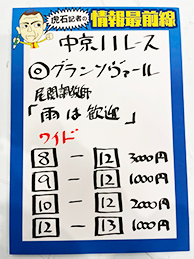 虎石記者の 情報最前線
中京11レース
◎グランヴァール
尾関調教師
「雨は歓迎」
ワイド
8 － 12 3000円
9 － 12 1000円
10 － 12 2000円
12 － 13 1000円